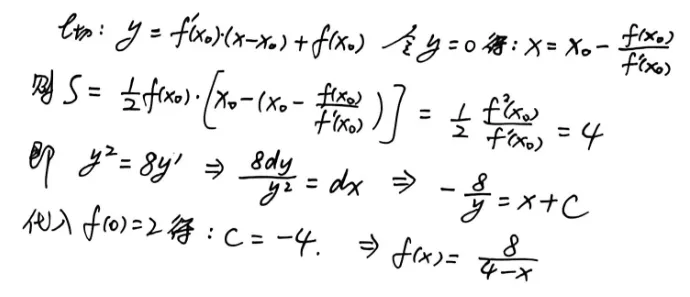 l切: y = f'(x₀)·(x-x₀) + f(x₀) 令 y = 0 得: x = x₀ - f(x₀)/f'(x₀)
则 S = 1/2 f(x₀)·[x₀-(x₀ - f(x₀)/f'(x₀))] = 1/2 f²(x₀)/f'(x₀) = 4
即 y² = 8y' ⇒ 8dy/y² = dx ⇒ -8/y = x + C
代入 f(0)=2 得: C = -4. ⇒ f(x) = 8/(4-x)